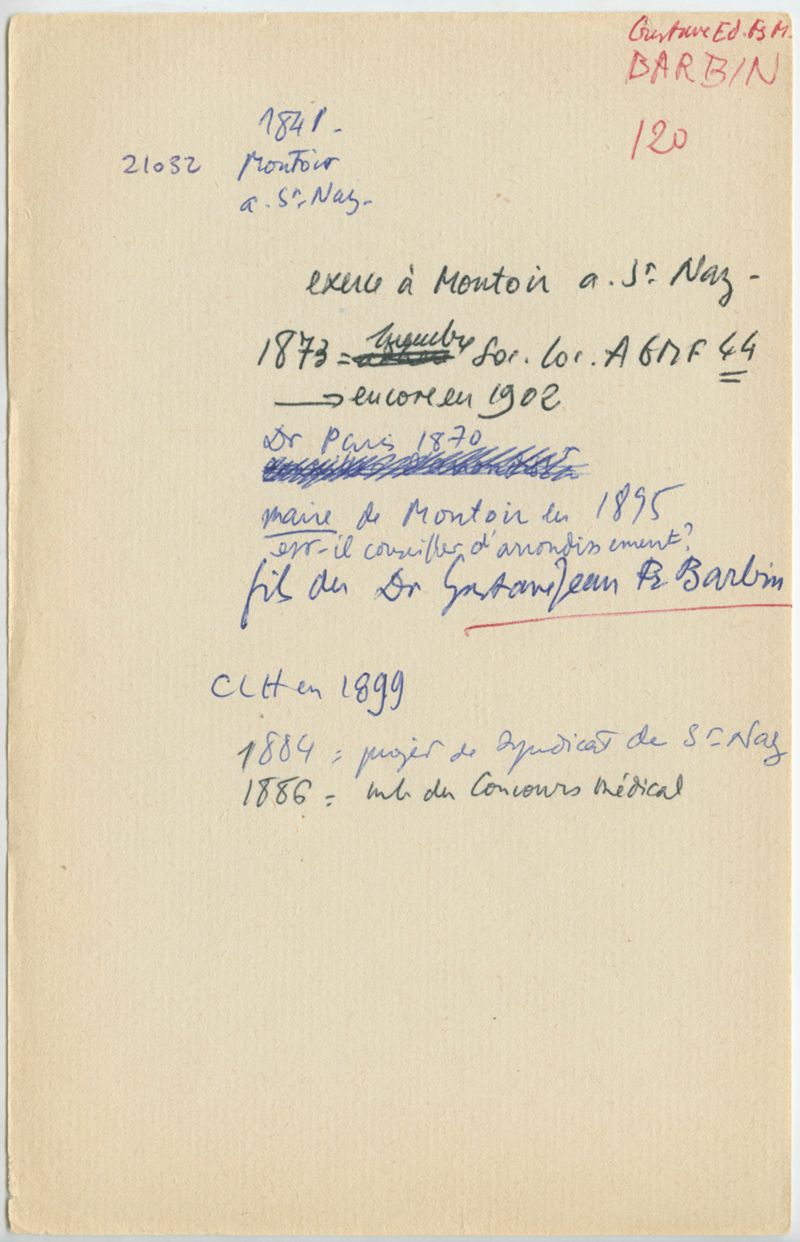 Gustave Ed. Fs M.
BARBIN
120
1841 -
21032 Montoir
a. St. Naz.
exerce à Montoir a. St Naz -
1873 = membre Soc. loc. AGMF 44
→ encore en 1902
Dr Paris 1870
maire de Montoir en 1895
est-il conseiller d'arrondissement?
fils du Dr Gustave Jean Fs Barbin
CLH en 1899
1884 = projet de Syndicat de St Naz
1886 = mb du Concours médical